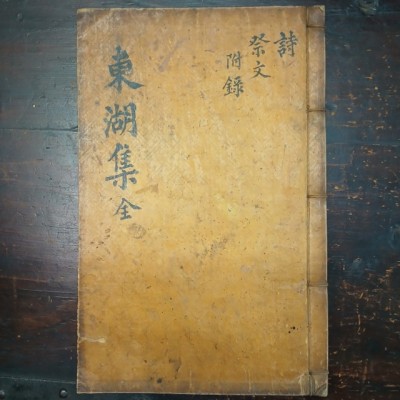 東湖集全
詩
祭文
附錄